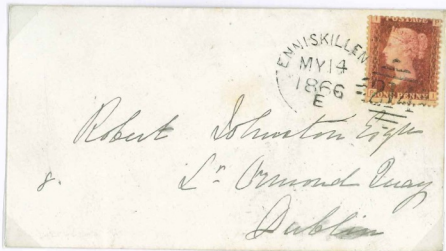 ENNISKILLEN
MY 14
1866
E
POSTAGE
ONE PENNY
Robert Johnston Esqre
8. Lr. Ormond Quay
Dublin